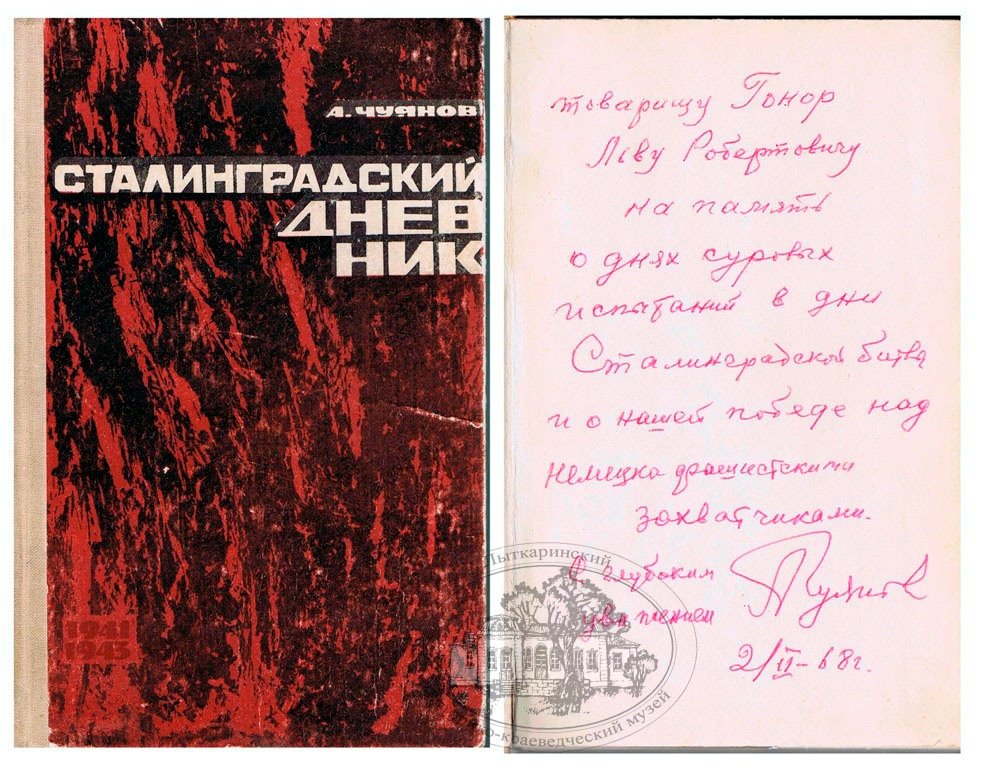 А. ЧУЯНОВ
СТАЛИНГРАДСКИЙ
ДНЕВ
НИК
1941
1943
товарищу Гонор
Леву Робертовичу
на память
о днях суровых
испытаний в дни
Сталинградской битвы
и о нашей победе над
немецко фашистскими
захватчиками.
С глубоким
уважением
2/II-68г.
Лыткаринский
о-краеведческий музей